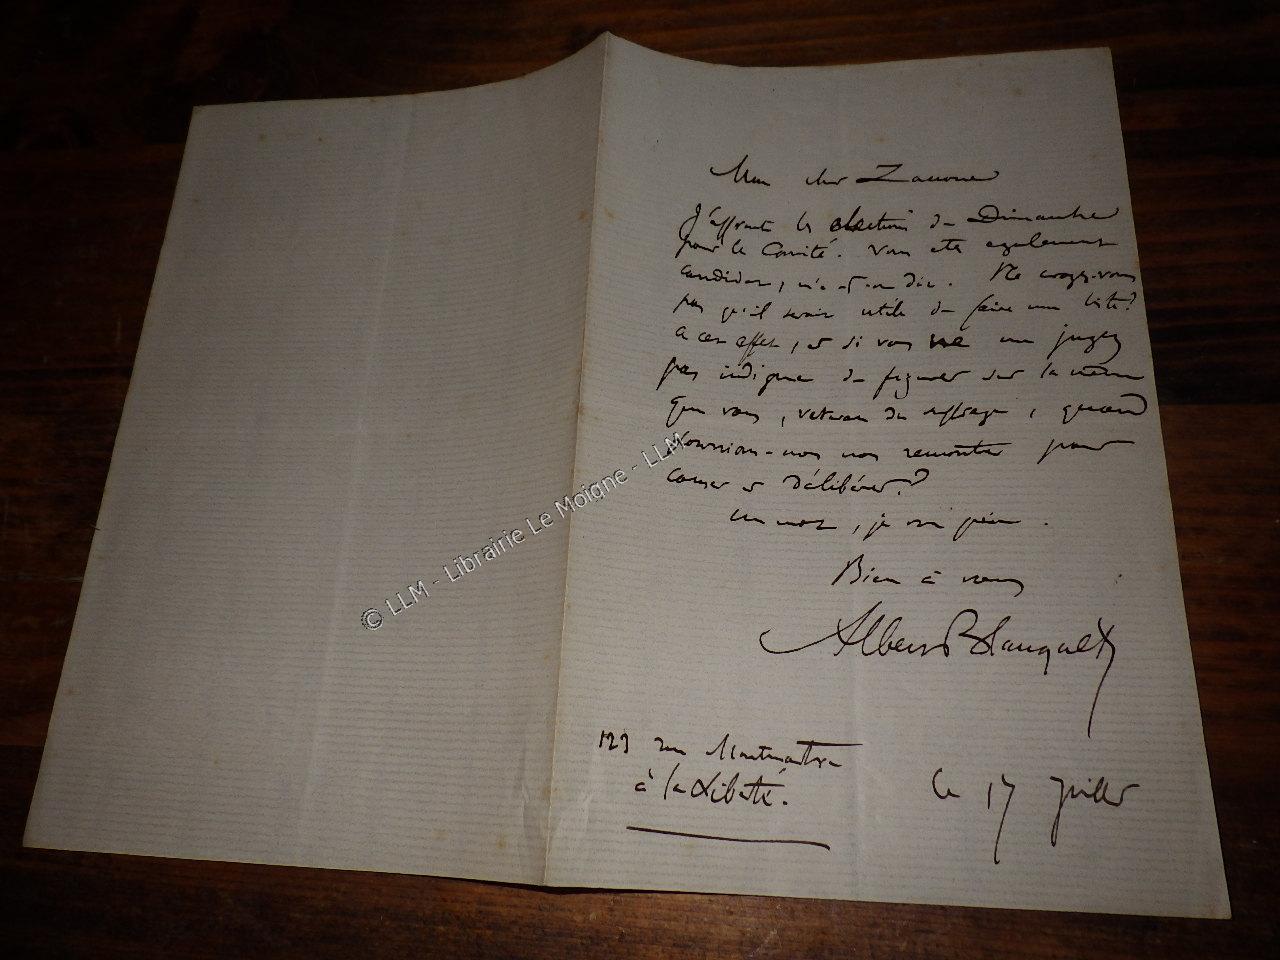 Mon cher Zaccone
J'affronte les élections de Dimanche
pour le Comité. Vous êtes également
candidat, m'a-t-on dit. Ne croyez-vous
pas qu'il serait utile de faire une liste?
A cet effet, et si vous ne me jugez
pas indigne de figurer sur la même
que vous, vétéran du suffrage, quand
pourrions-nous nous rencontrer pour
causer et délibérer?
Un mot, je vous prie.
Bien à vous
Albert Blanquet
123 rue Montmartre
à la Liberté.
Le 17 Juillet
© LLM - Librairie Le Moigne - LLM